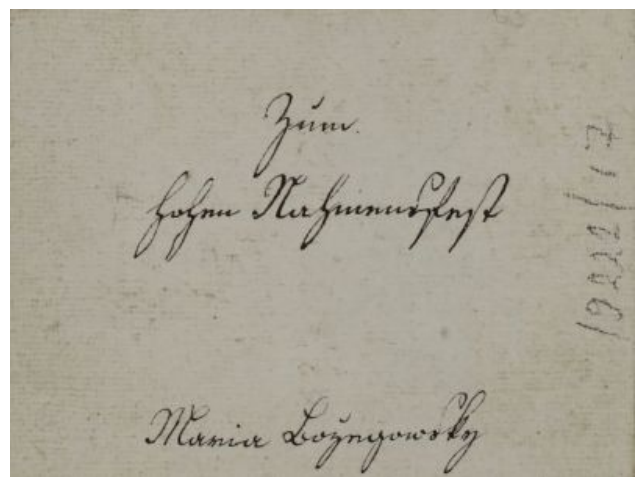 Zum
hohen Nahmensfest
Maria Bozegowsky
19222/17